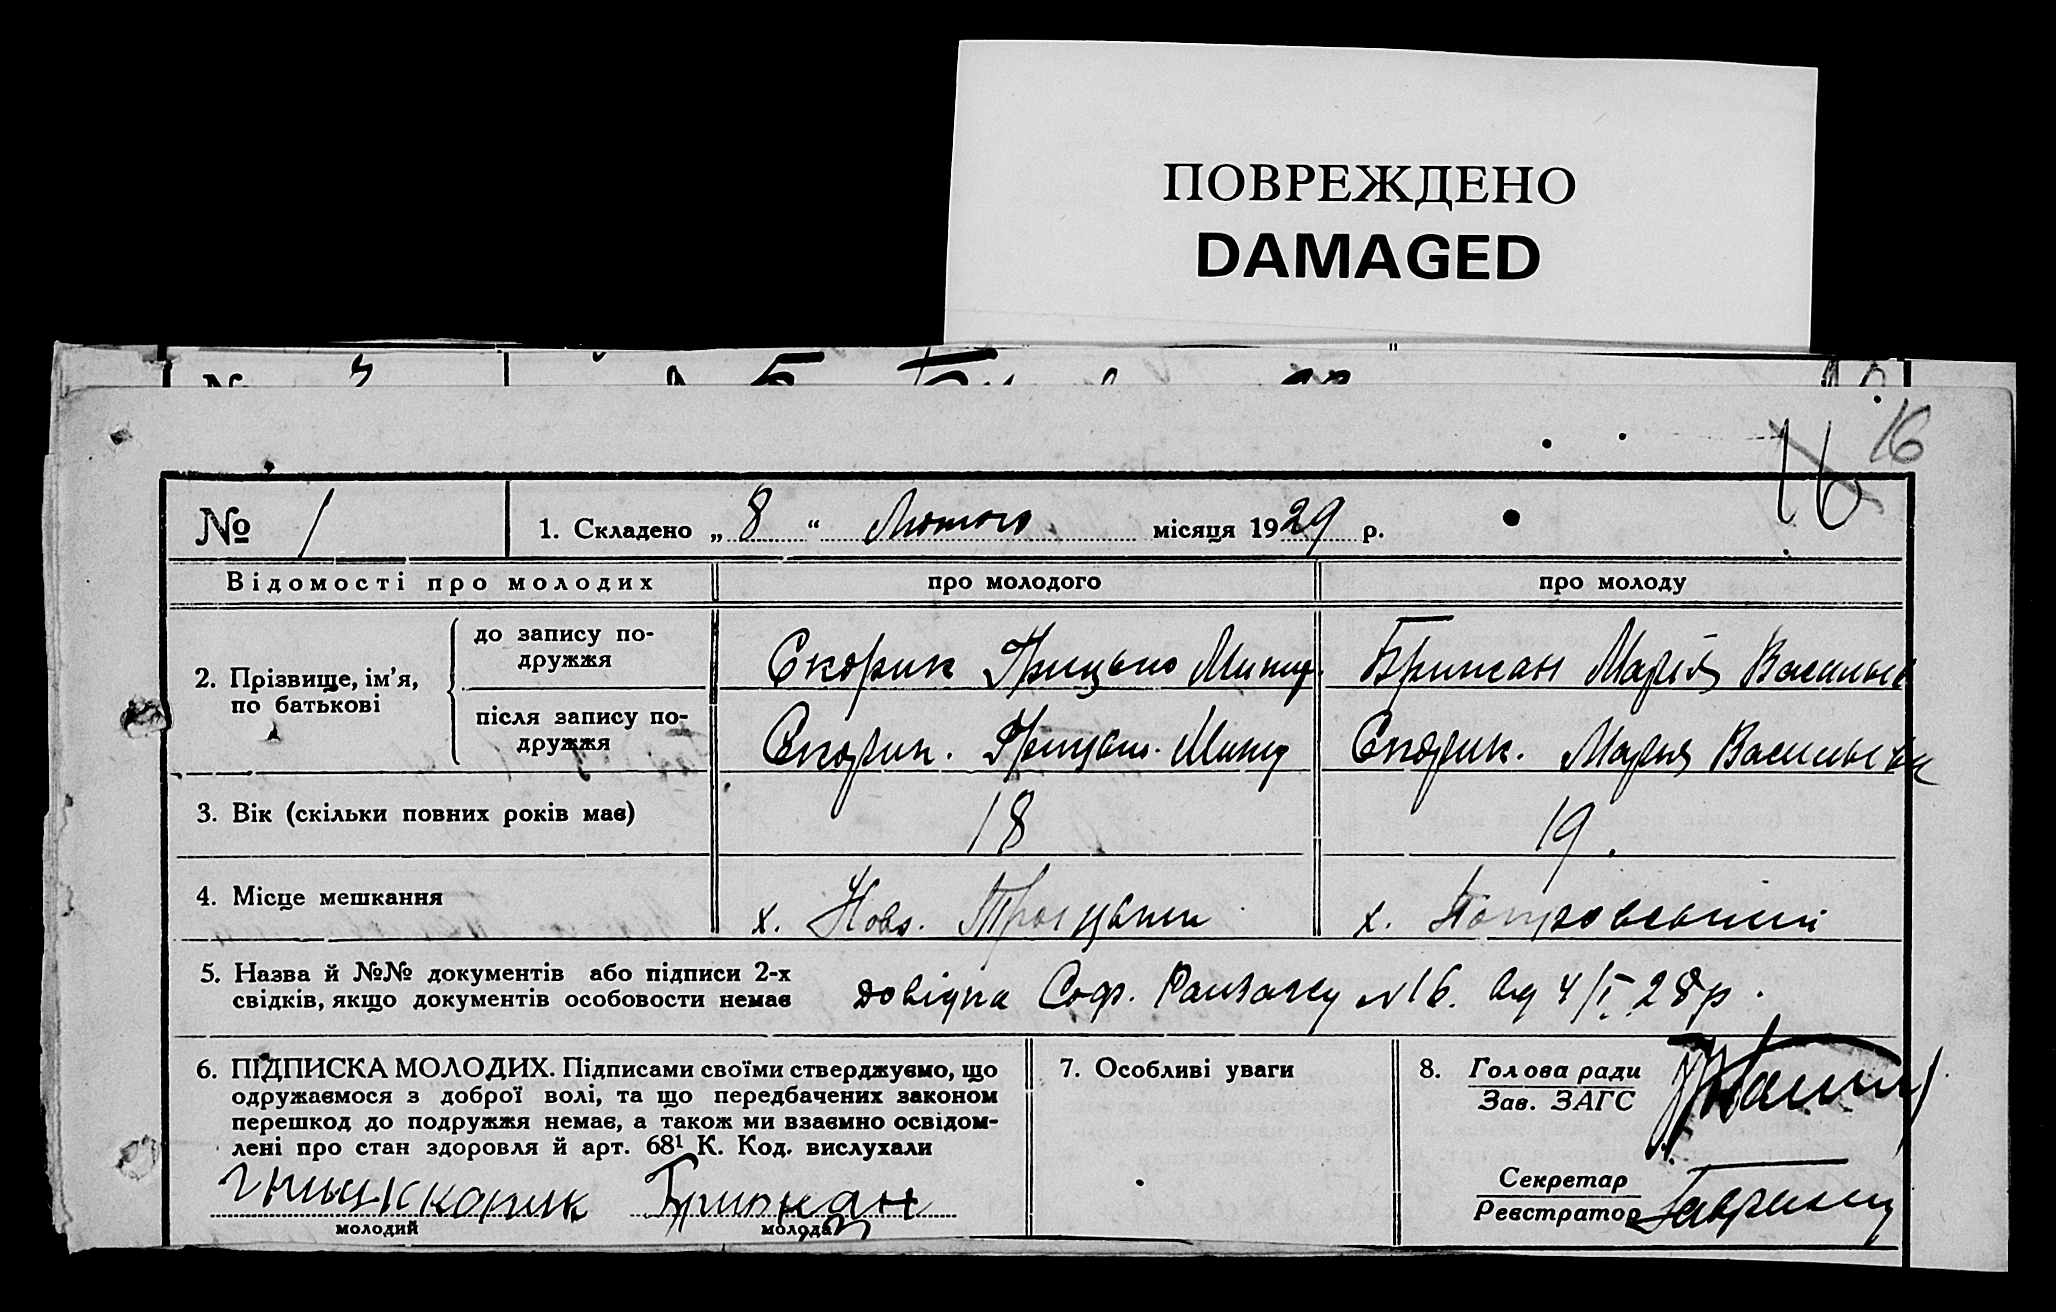 ПОВРЕЖДЕНО
DAMAGED
16
16
№ 1
1. Складено „ 8 “ Лютого місяця 1929 р.
Відомості про молодих
про молодого
про молоду
2. Прізвище, ім'я, по батькові
до запису подружжя
Скорик Грицько Микит.
Брижан Марія Васильів
після запису подружжя
Скорик. Грицько. Микит
Скорик. Марія Васильівн
3. Вік (скільки повних років має)
18
19.
4. Місце мешкання
х. Ново.
х.
5. Назва й №№ документів або підписи 2-х
свідків, якщо документів особовости немає
довідка Соф. N 16. від 4/I 28р.
6. ПІДПИСКА МОЛОДИХ. Підписами своїми стверджуємо, що
одружаємося з доброї волі, та що передбачених законом
перешкод до подружжя немає, а також ми взаємно освідом-
лені про стан здоровля й арт. 68¹ К. Код. вислухали
молодий
молода
7. Особливі уваги
8. Голова ради
Зав. ЗАГС
Секретар
Реєстратор